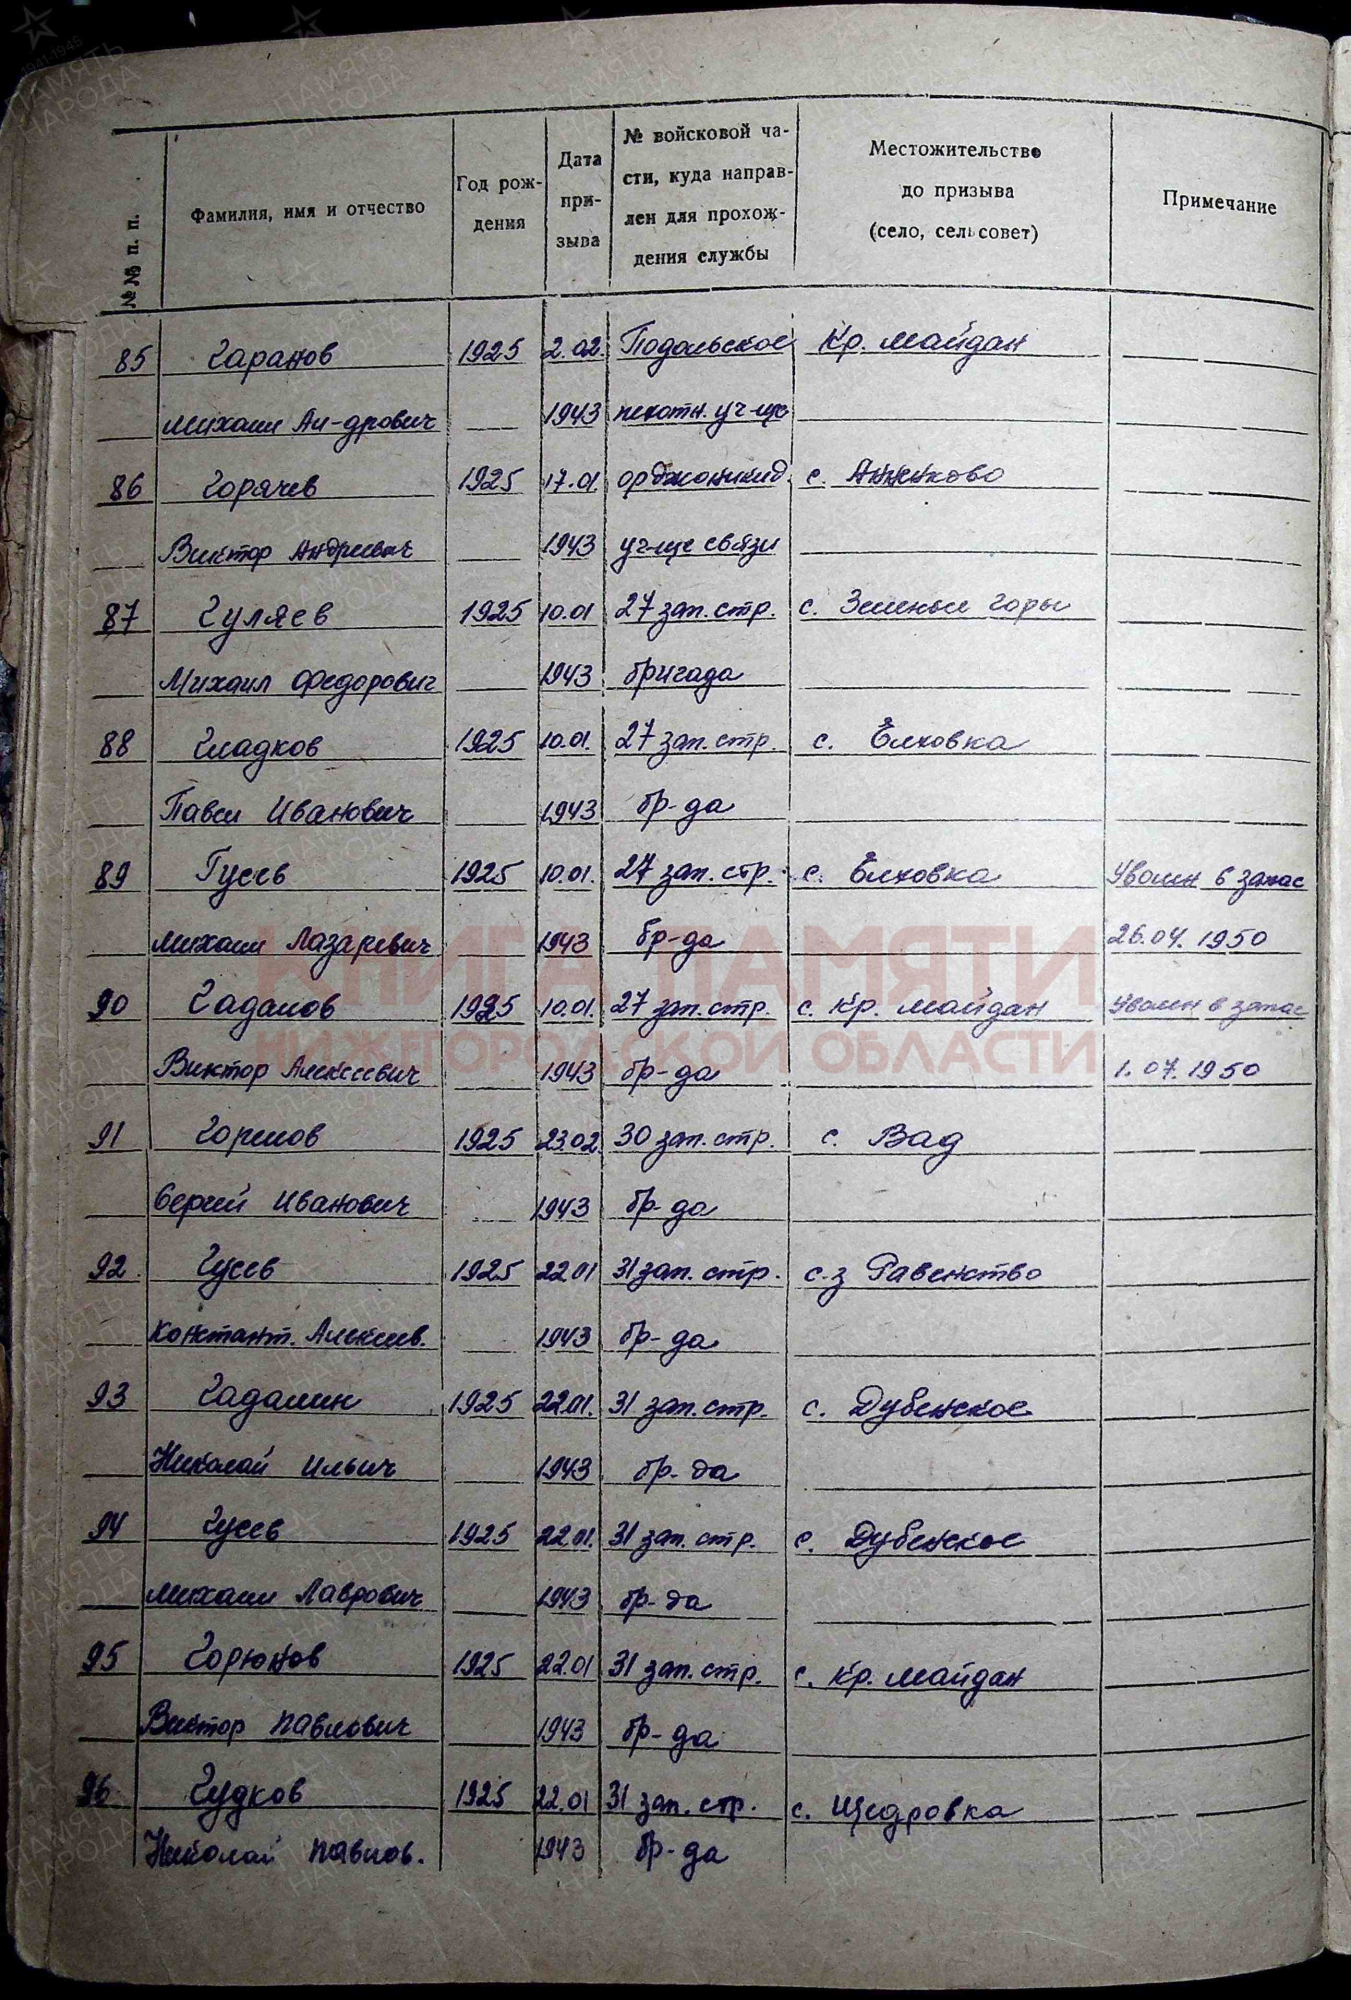 №№ п. п.
Фамилия, имя и отчество
Год рож-
дения
Дата
при-
зыва
№ войсковой ча-
сти, куда направ-
лен для прохож-
дения службы
Местожительство
до призыва
(село, сельсовет)
Примечание
85 Гаранов 1925 2.02. Подольское Кр. Майдан
Михаил Ал-дрович 1943 пехотн. уч-ще
86 Горячев 1925 17.01 орджоникид. с. Анненково
Виктор Андреевич 1943 уч-ще связи
87 Гуляев 1925 10.01 27 зап. стр. с. Зеленые Горы
Михаил Федорович 1943 бригада
88 Гладков 1925 10.01. 27 зап. стр. с. Елховка
Павел Иванович 1943 бр-да
89 Гусев 1925 10.01. 27 зап. стр. с. Елховка Уволен в запас
Михаил Лазаревич 1943 бр-да 26.04.1950
90 Гадалов 1925 10.01. 27 зап. стр. с. Кр. Майдан Уволен в запас
Виктор Алексеевич 1943 бр-да 1.07.1950
91 Горшов 1925 23.02. 30 зап. стр. с. Вад
Сергей Иванович 1943 бр-да
92 Гусев 1925 22.01 31 зап. стр. с-з Равенство
Константи. Алексеев. 1943 бр-да
93 Гадалин 1925 22.01. 31 зап. стр. с. Дубенское
Николай Ильич 1943 бр-да
94 Гусев 1925 22.01. 31 зап. стр. с. Дубенское
Михаил Лаврович 1943 бр-да
95 Горюнов 1925 22.01 31 зап. стр. с. Кр. Майдан
Виктор Павлович 1943 бр-да
96 Гудков 1925 22.01 31 зап. стр. с. Щедровка
Николай Павлов. 1943 бр-да
КНИГА ПАМЯТИ
НИЖЕГОРОДСКОЙ ОБЛАСТИ
ПАМЯТЬ
НАРОДА
1941-1945